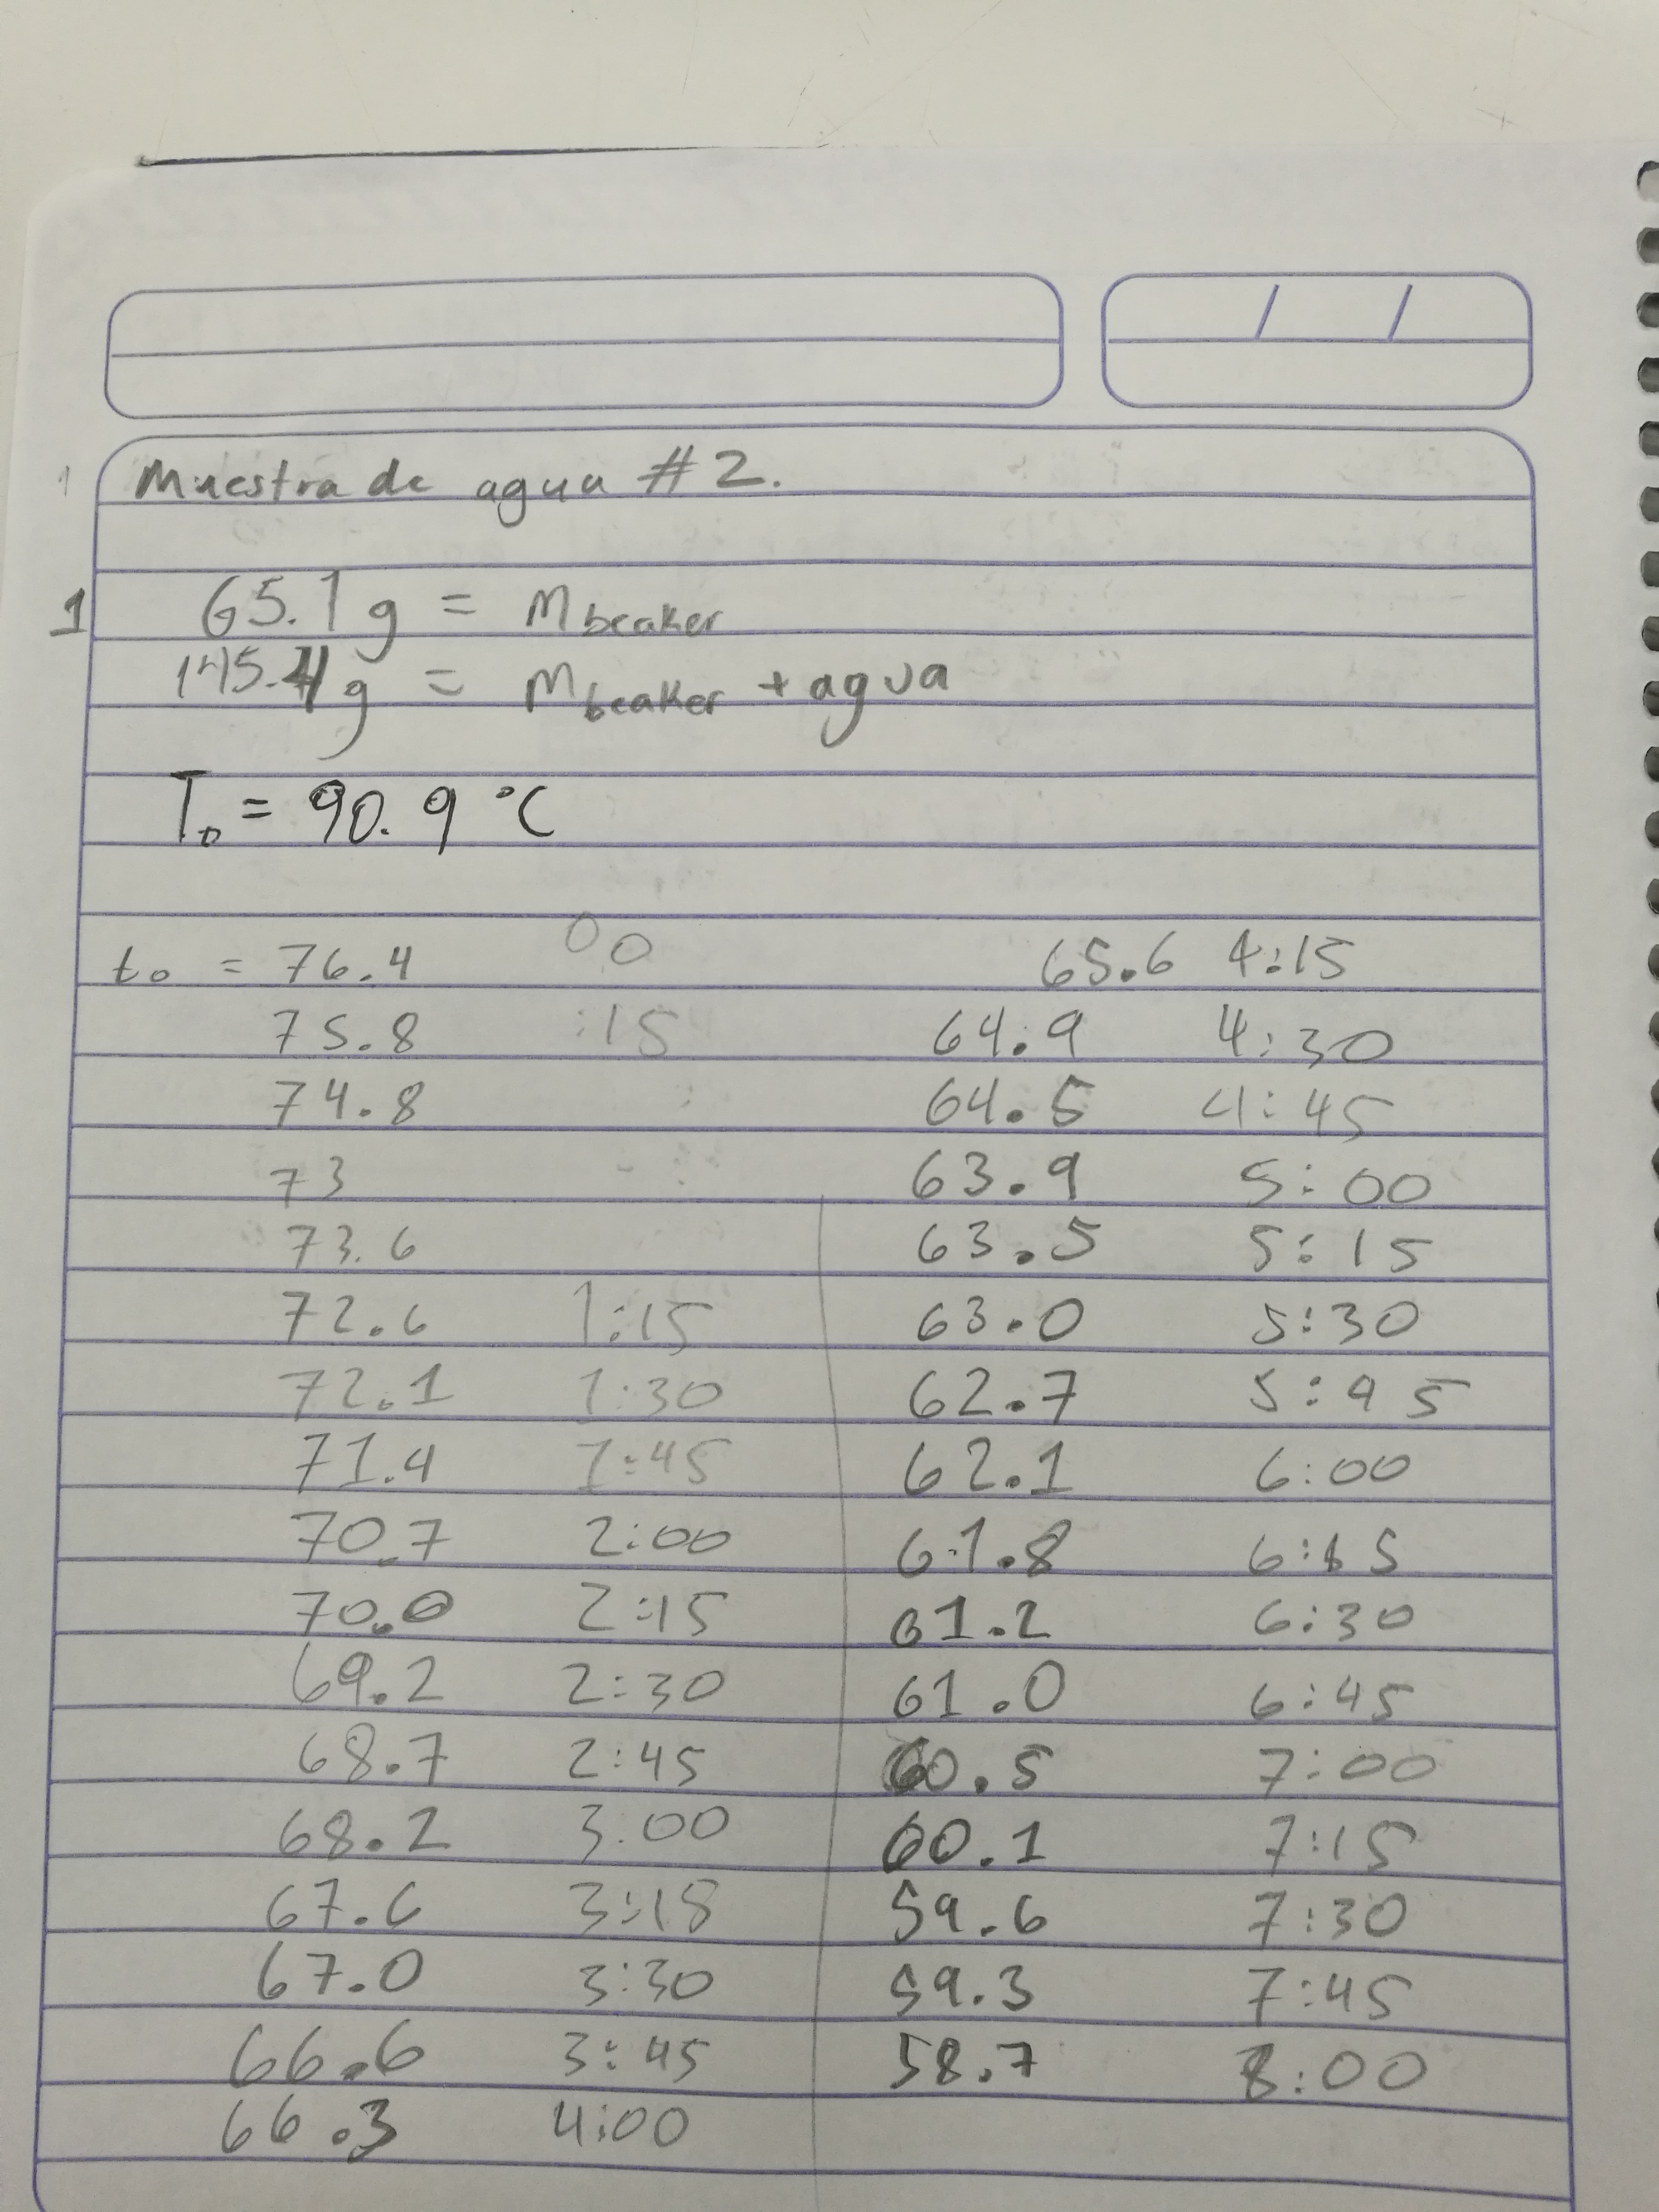 Muestra de agua #2.
1
65.1 g = m beaker
145.4 g = m beaker + agua
T₀ = 90.9 °C
t₀ = 76.4 00
75.8 :15
74.8 :
73
73.6
72.6 1:15
72.1 1:30
71.4 1:45
70.7 2:00
70.0 2:15
69.2 2:30
68.7 2:45
68.2 3:00
67.6 3:15
67.0 3:30
66.6 3:45
66.3 4:00
65.6 4:15
64.9 4:30
64.5 4:45
63.9 5:00
63.5 5:15
63.0 5:30
62.7 5:45
62.1 6:00
61.8 6:15
61.2 6:30
61.0 6:45
60.5 7:00
60.1 7:15
59.6 7:30
59.3 7:45
58.7 8:00